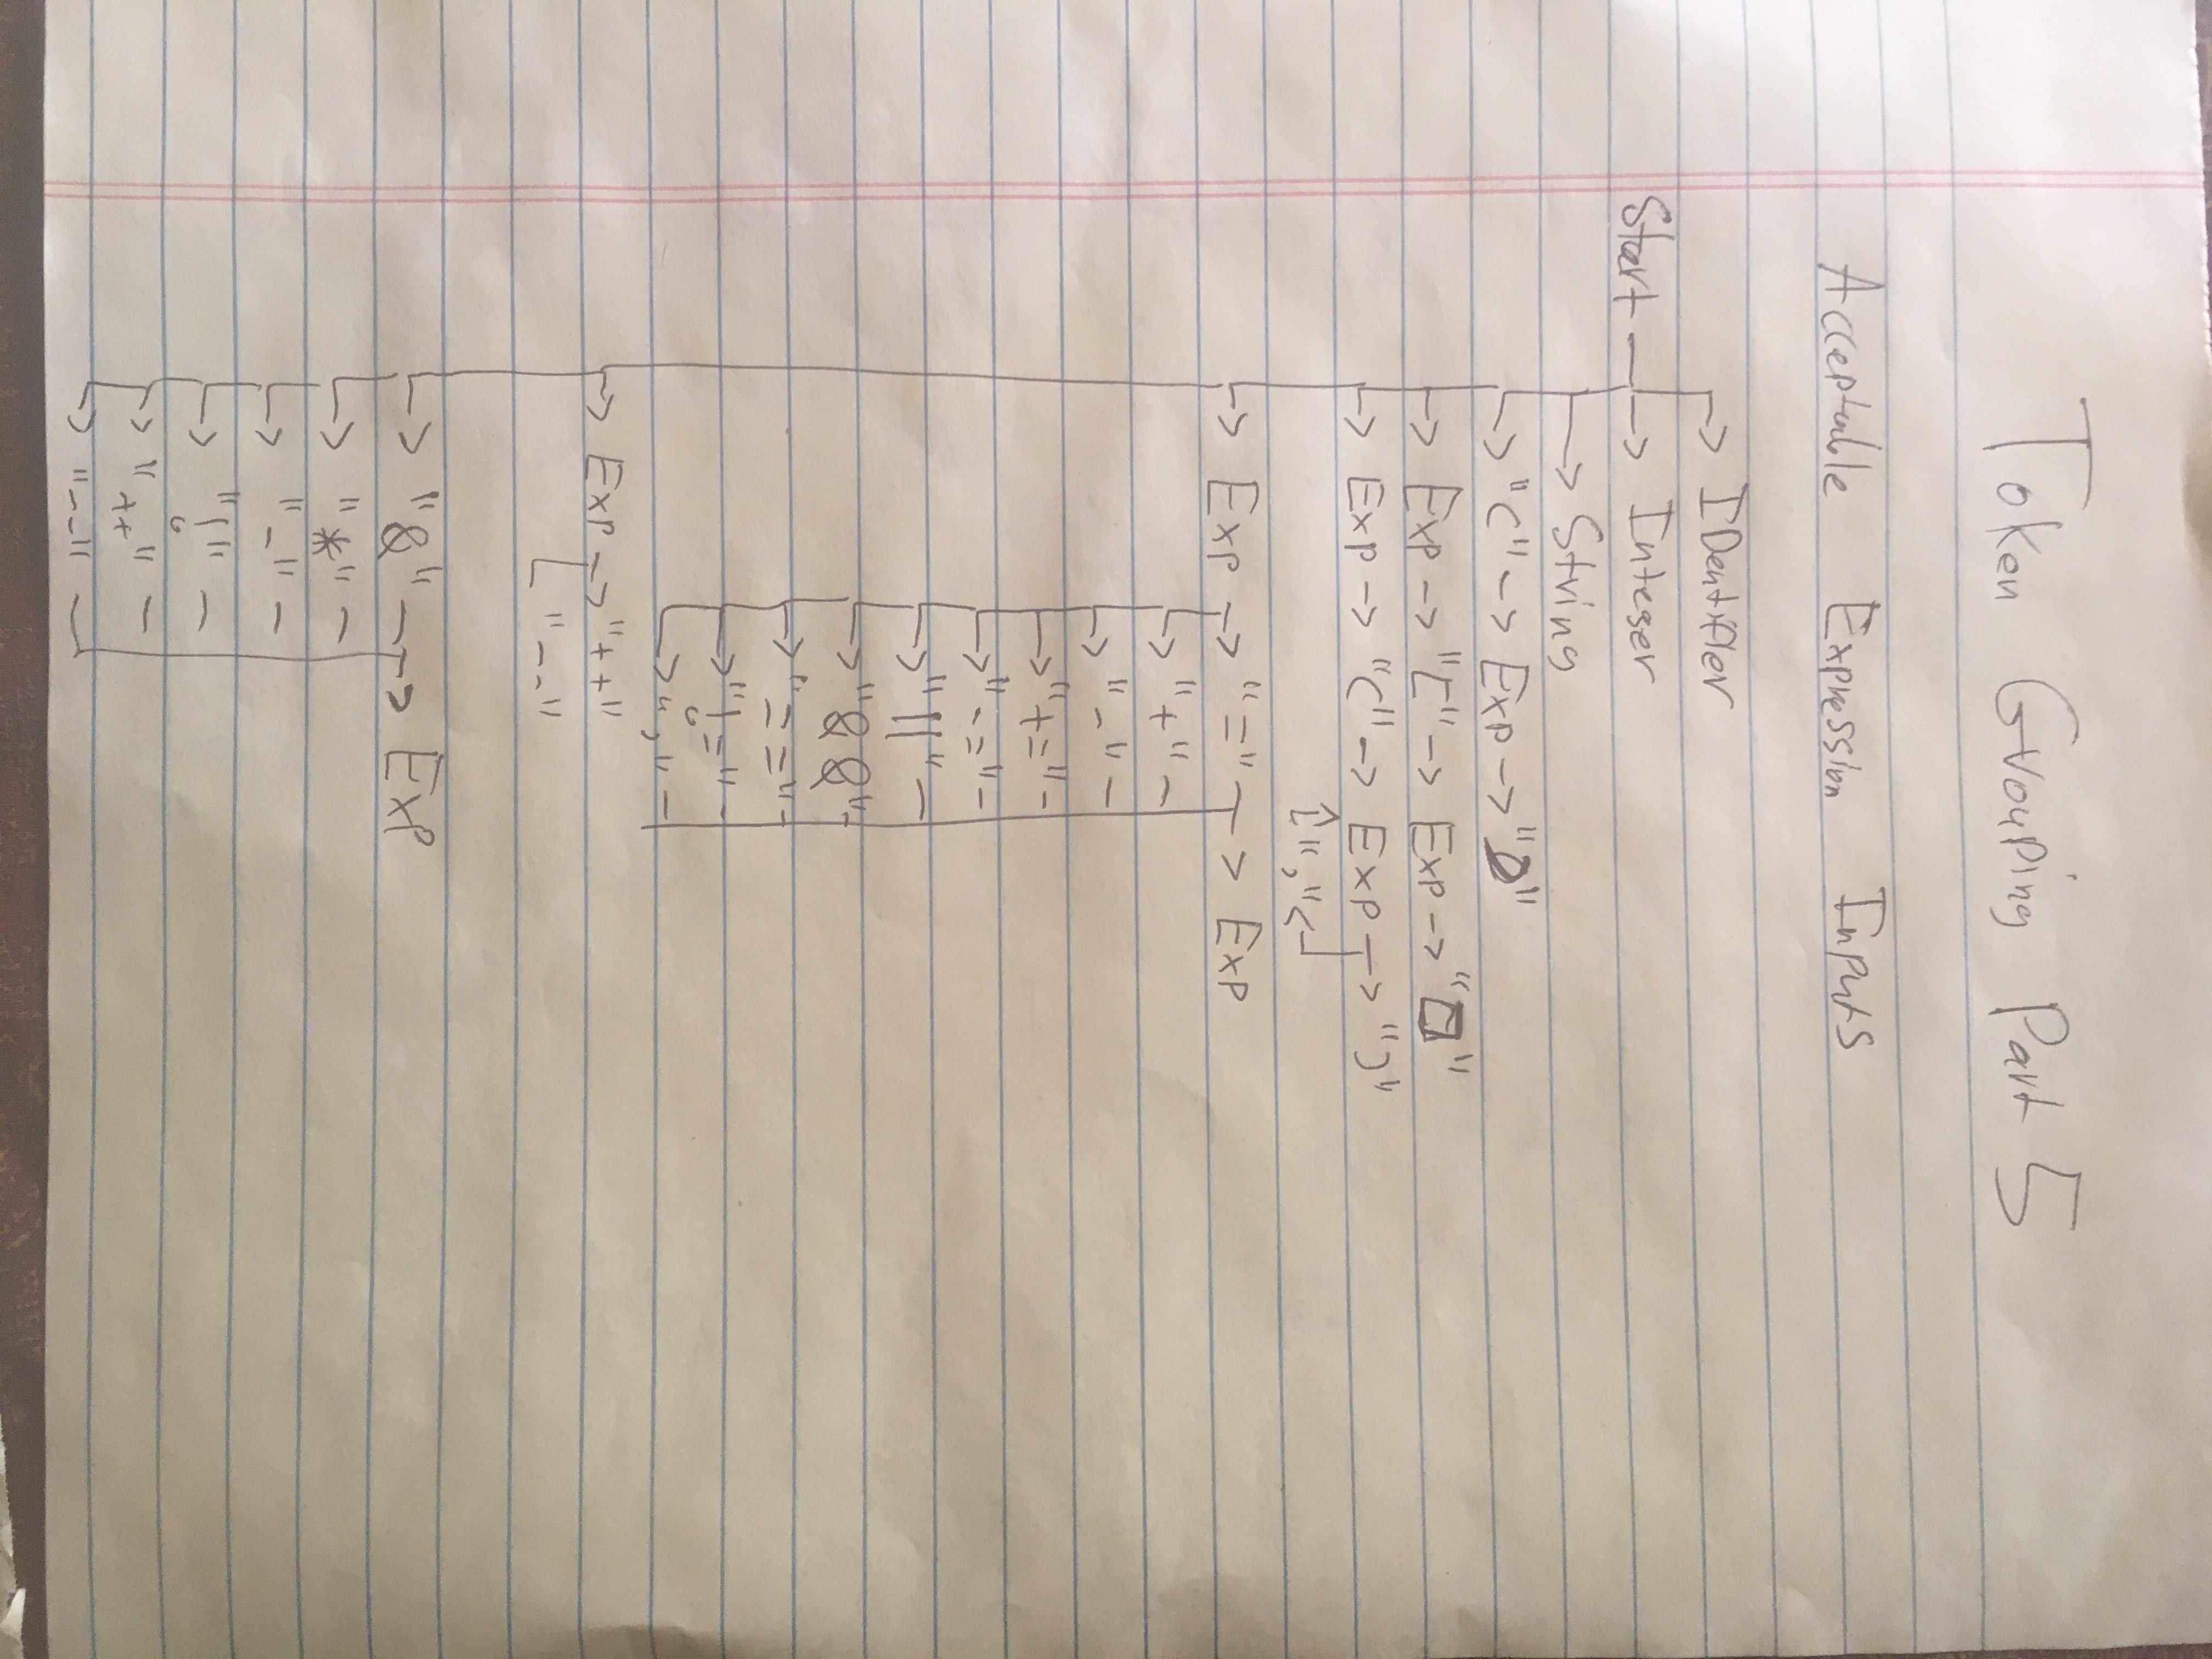 Token Grouping Part 5
Acceptable Expression Inputs
-> IDentifier
Start --> Integer
-> String
-> "(" -> Exp -> ")"
-> Exp -> "[" -> Exp -> "]"
-> Exp -> "(" -> Exp -> ")"
","
-> Exp -> "=" -> Exp
-> "+" -
-> "-" -
-> "+=" -
-> "-=" -
-> "||" -
-> "&&" -
-> "==" -
-> "!=" -
-> "," -
-> Exp -> "++"
"--"
-> "&" -> Exp
-> "*" -
-> "-" -
-> "!" -
-> "++" -
-> "--" -